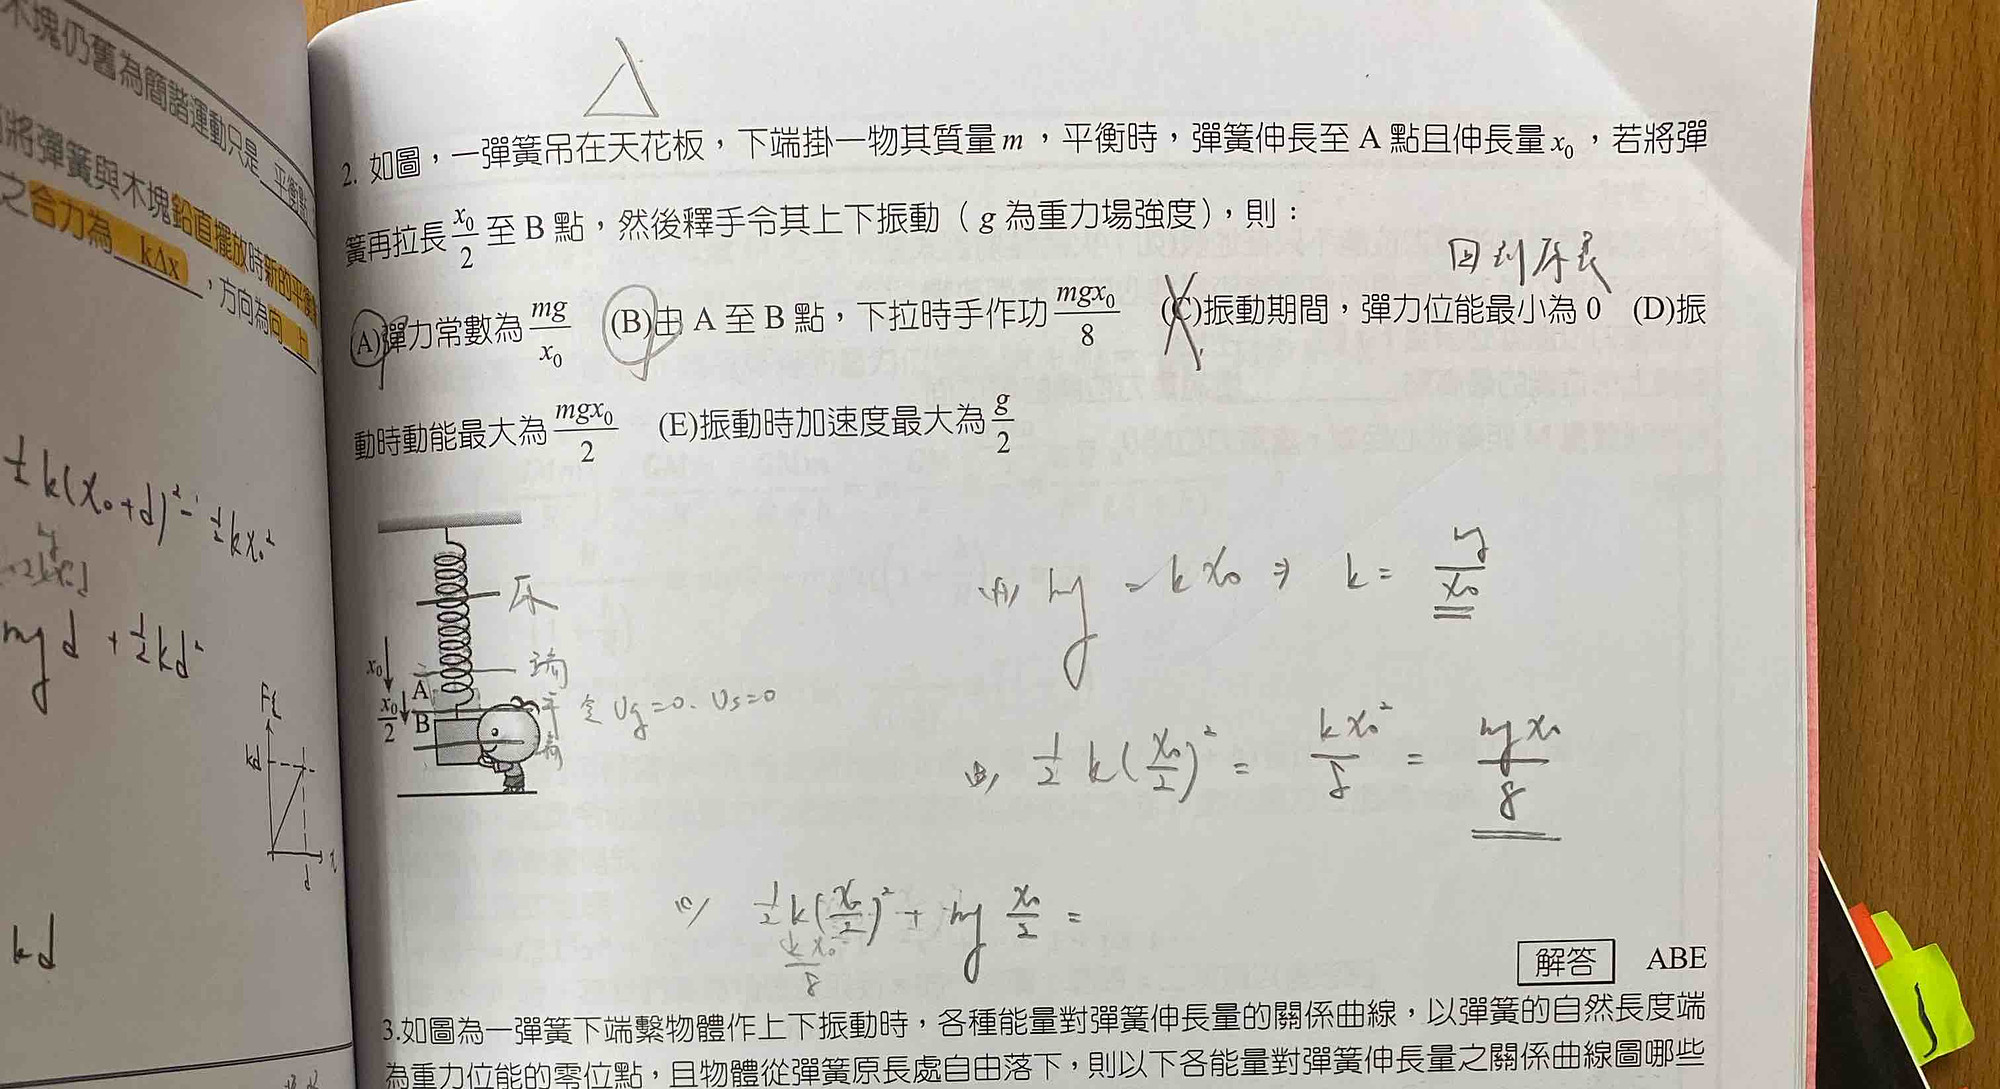 木塊仍舊為簡諧運動只是 平衡點
將彈簧與木塊鉛直擺放時新的平衡
之合力為 kΔx ,方向為向上
½k(x₀+d)² - ½kx₀²
mgd + ½kd²
kd
d
kd
2. 如圖,一彈簧吊在天花板,下端掛一物其質量 m ,平衡時,彈簧伸長至 A 點且伸長量 x₀ ,若將彈
簧再拉長 x₀/2 至 B 點,然後釋手令其上下振動(g 為重力場強度),則:
回到原長
(A)彈力常數為 mg/x₀ (B)由 A 至 B 點,下拉時手作功 mgx₀/8 (C)振動期間,彈力位能最小為 0 (D)振
動時動能最大為 mgx₀/2 (E)振動時加速度最大為 g/2
原
端
x₀
A
x₀/2
B
平 令 Ug=0. Us=0
端
(A) mg = kx₀ ⇒ k = mg/x₀
(B) ½k(x₀/2)² = kx₀²/8 = mgx₀/8
(C) ½k(x₀/2)² + mg x₀/2 =
kx₀²/8
解答 ABE
3.如圖為一彈簧下端繫物體作上下振動時,各種能量對彈簧伸長量的關係曲線,以彈簧的自然長度端
為重力位能的零位點,且物體從彈簧原長處自由落下,則以下各能量對彈簧伸長量之關係曲線圖哪些